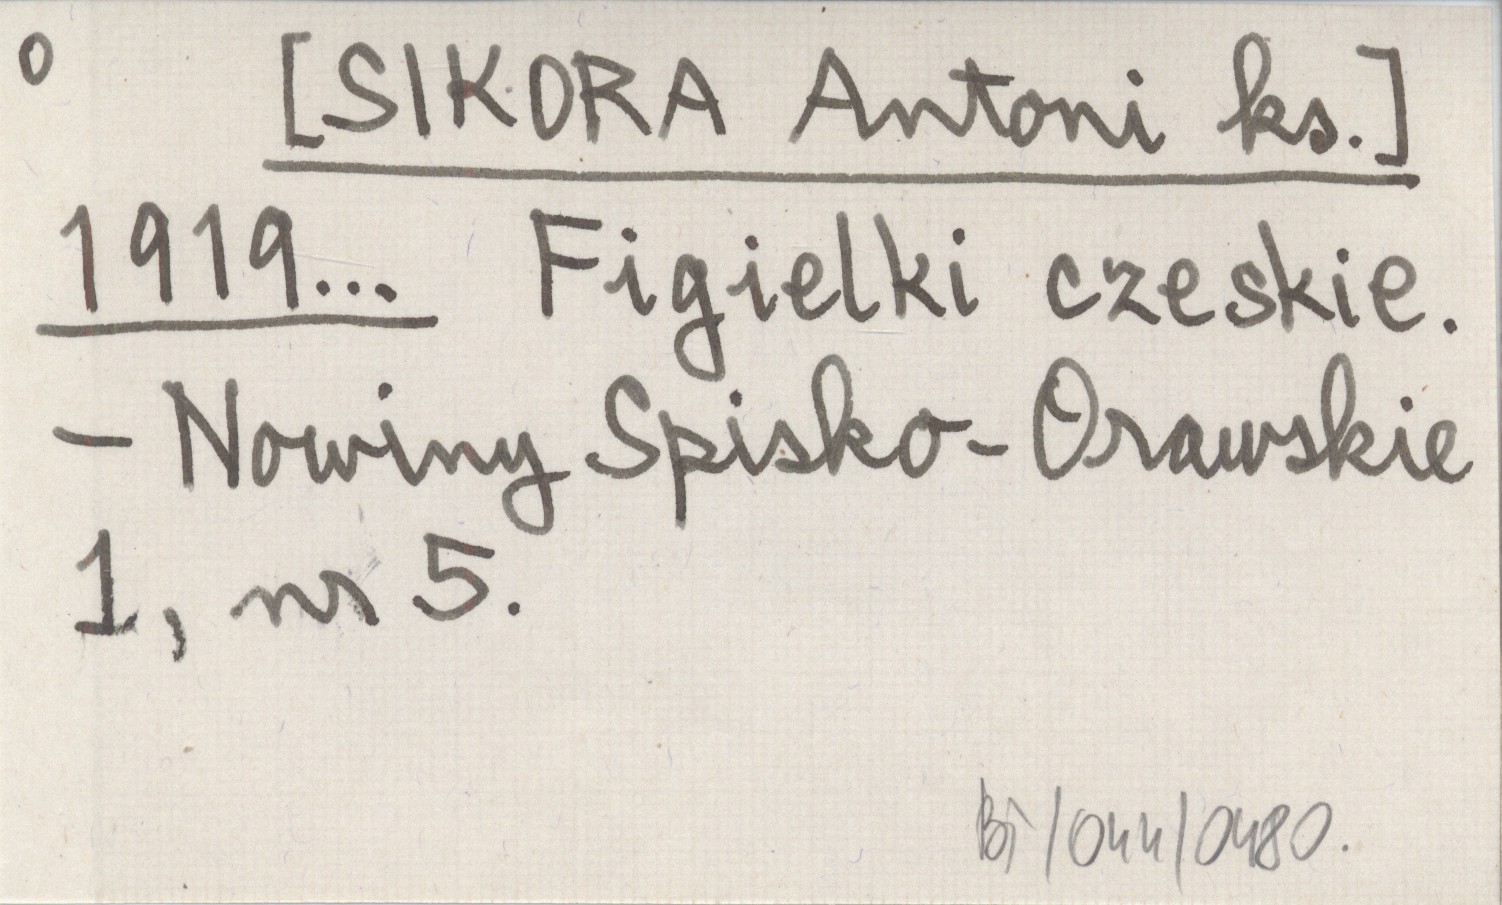 o [SIKORA Antoni ks.]
1919... Figielki czeskie.
- Nowiny Spisko-Orawskie
1, nr 5.
Bi/044/0480.